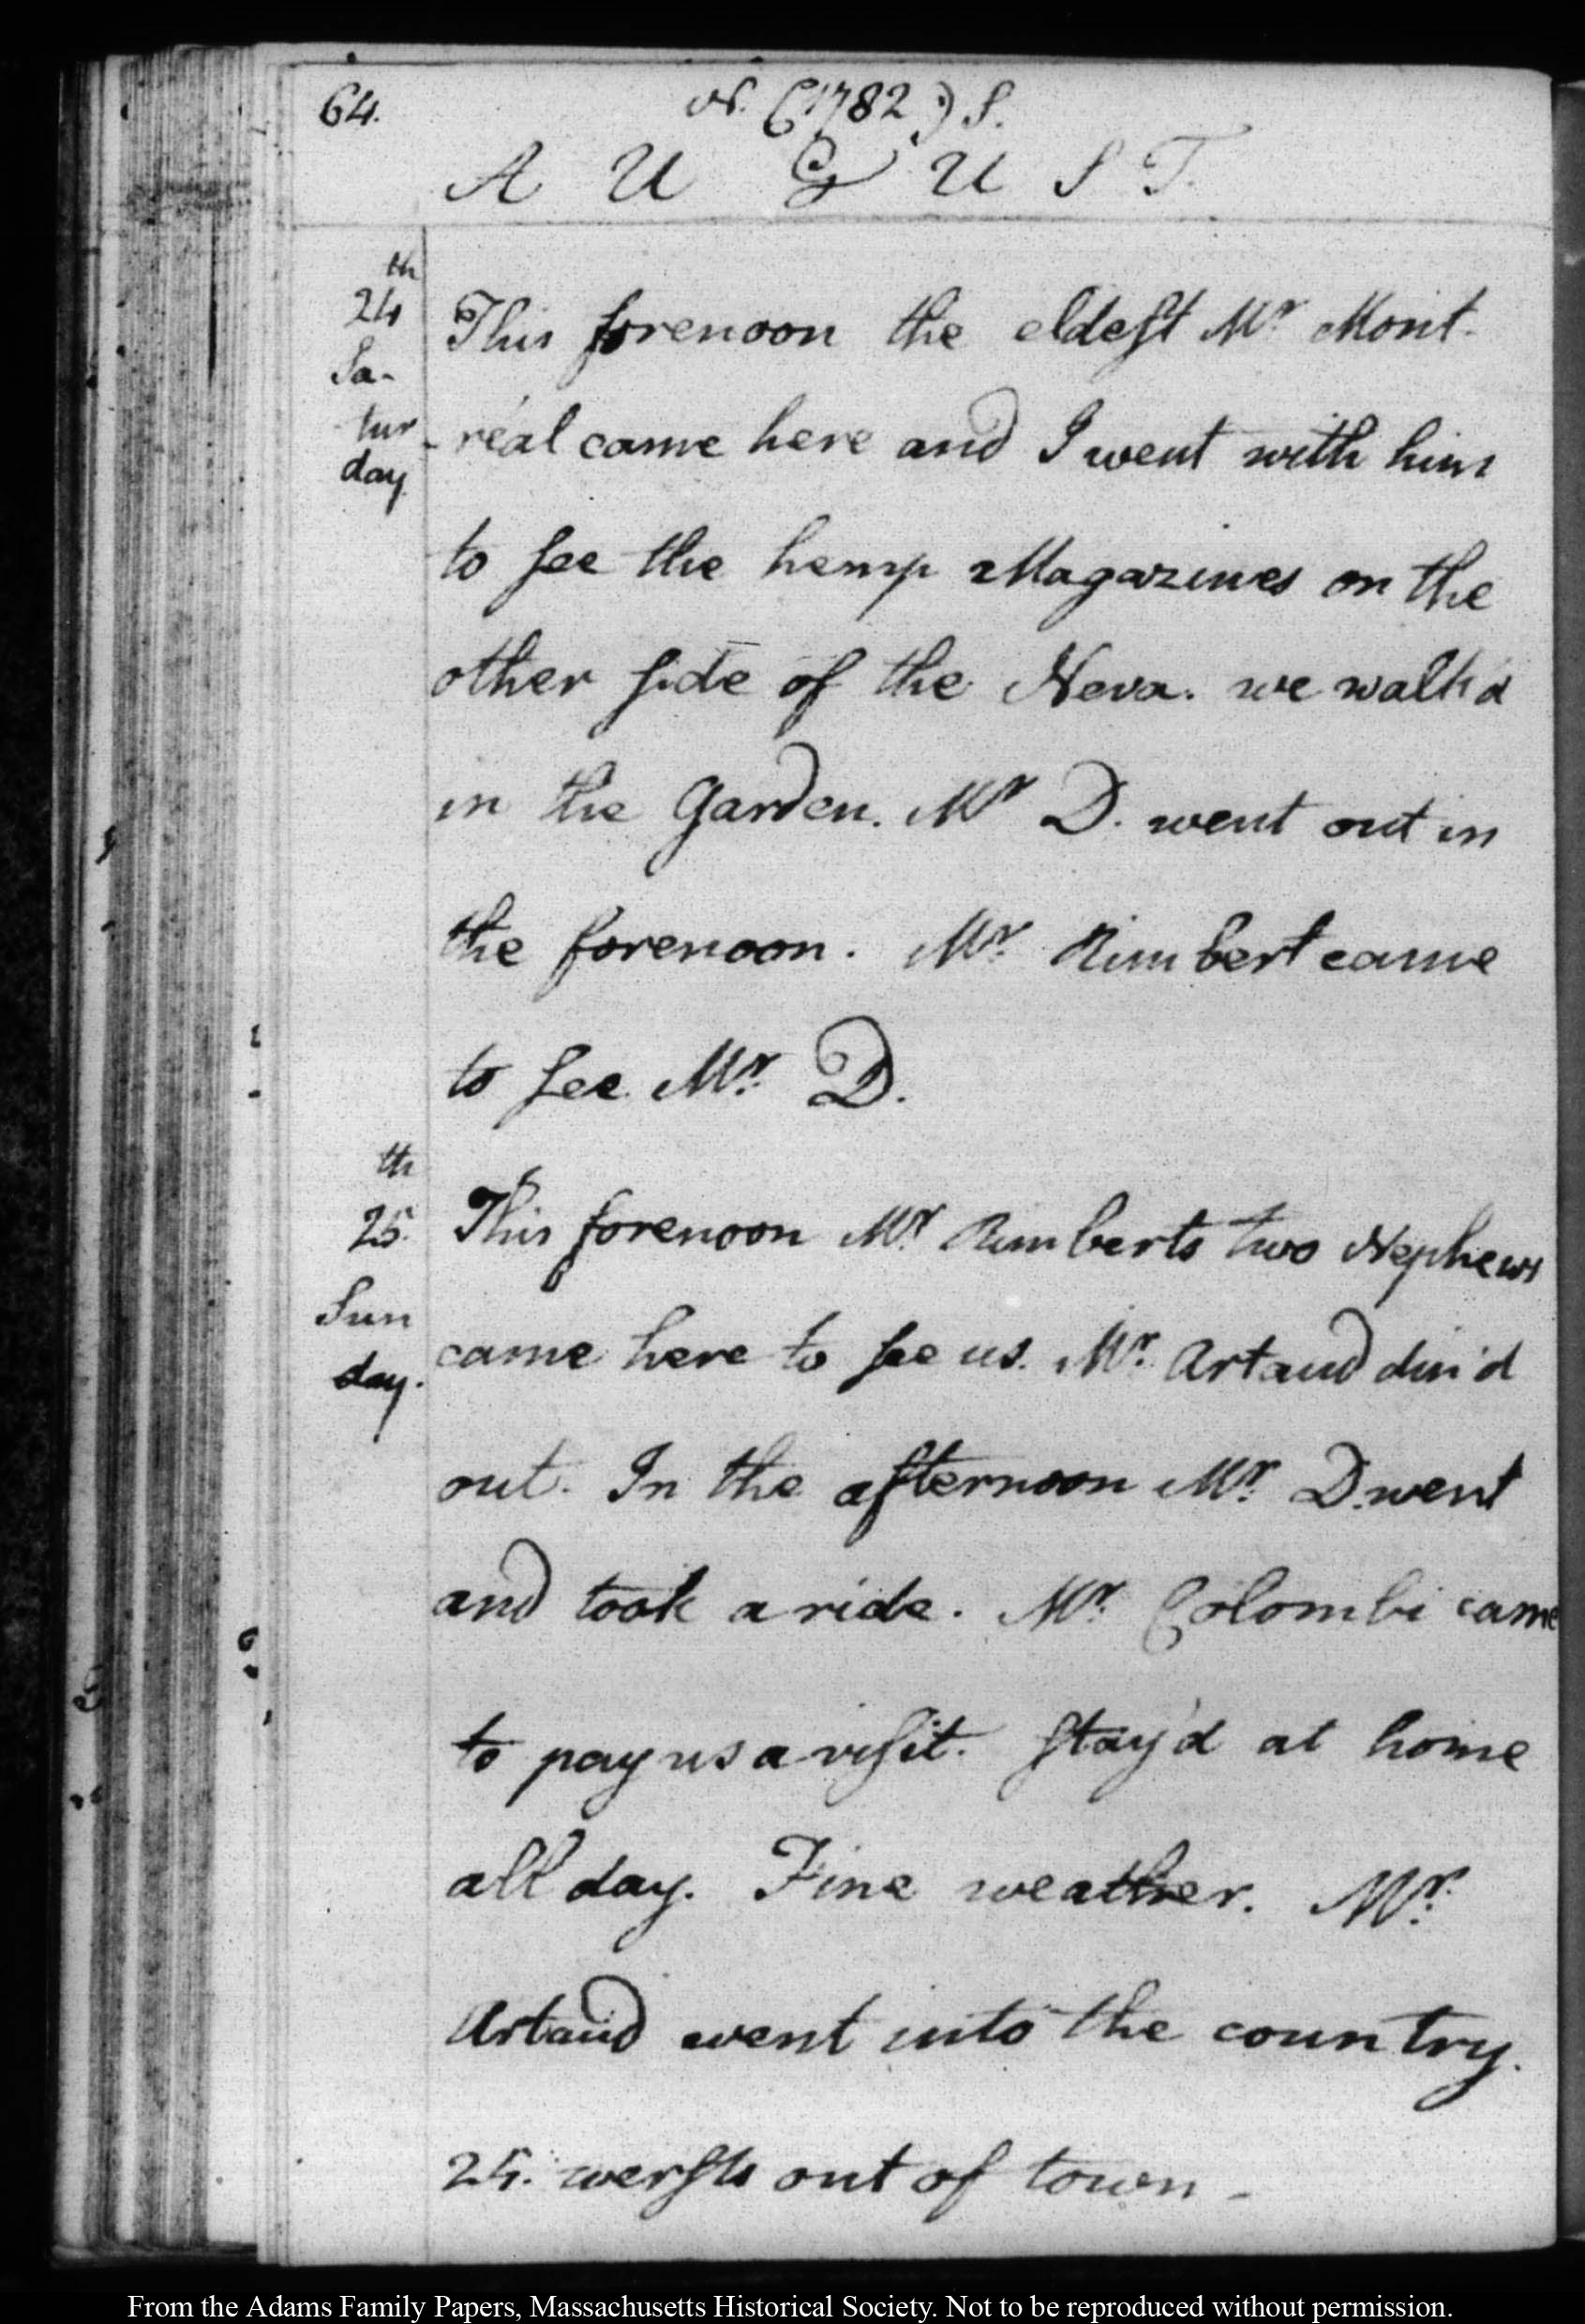 64. N. (1782.) S.
A U G U S T.
24th Sa-tur day
This forenoon the eldest Mr. Mont-
-réal came here and I went with him
to see the hemp Magazines on the
other side of the Neva. we walk'd
in the Garden. Mr D. went out in
the forenoon. Mr. Rimbert came
to see Mr. D.
25th. Sun day.
This forenoon Mr. Rimberts two Nephews
came here to see us. Mr. Artaud din'd
out. In the afternoon Mr. D. went
and took a ride. Mr. Colombi came
to pay us a visit. stay'd at home
all day. Fine weather. Mr.
Artaud went into the country.
25. wersts out of town -
From the Adams Family Papers, Massachusetts Historical Society. Not to be reproduced without permission.